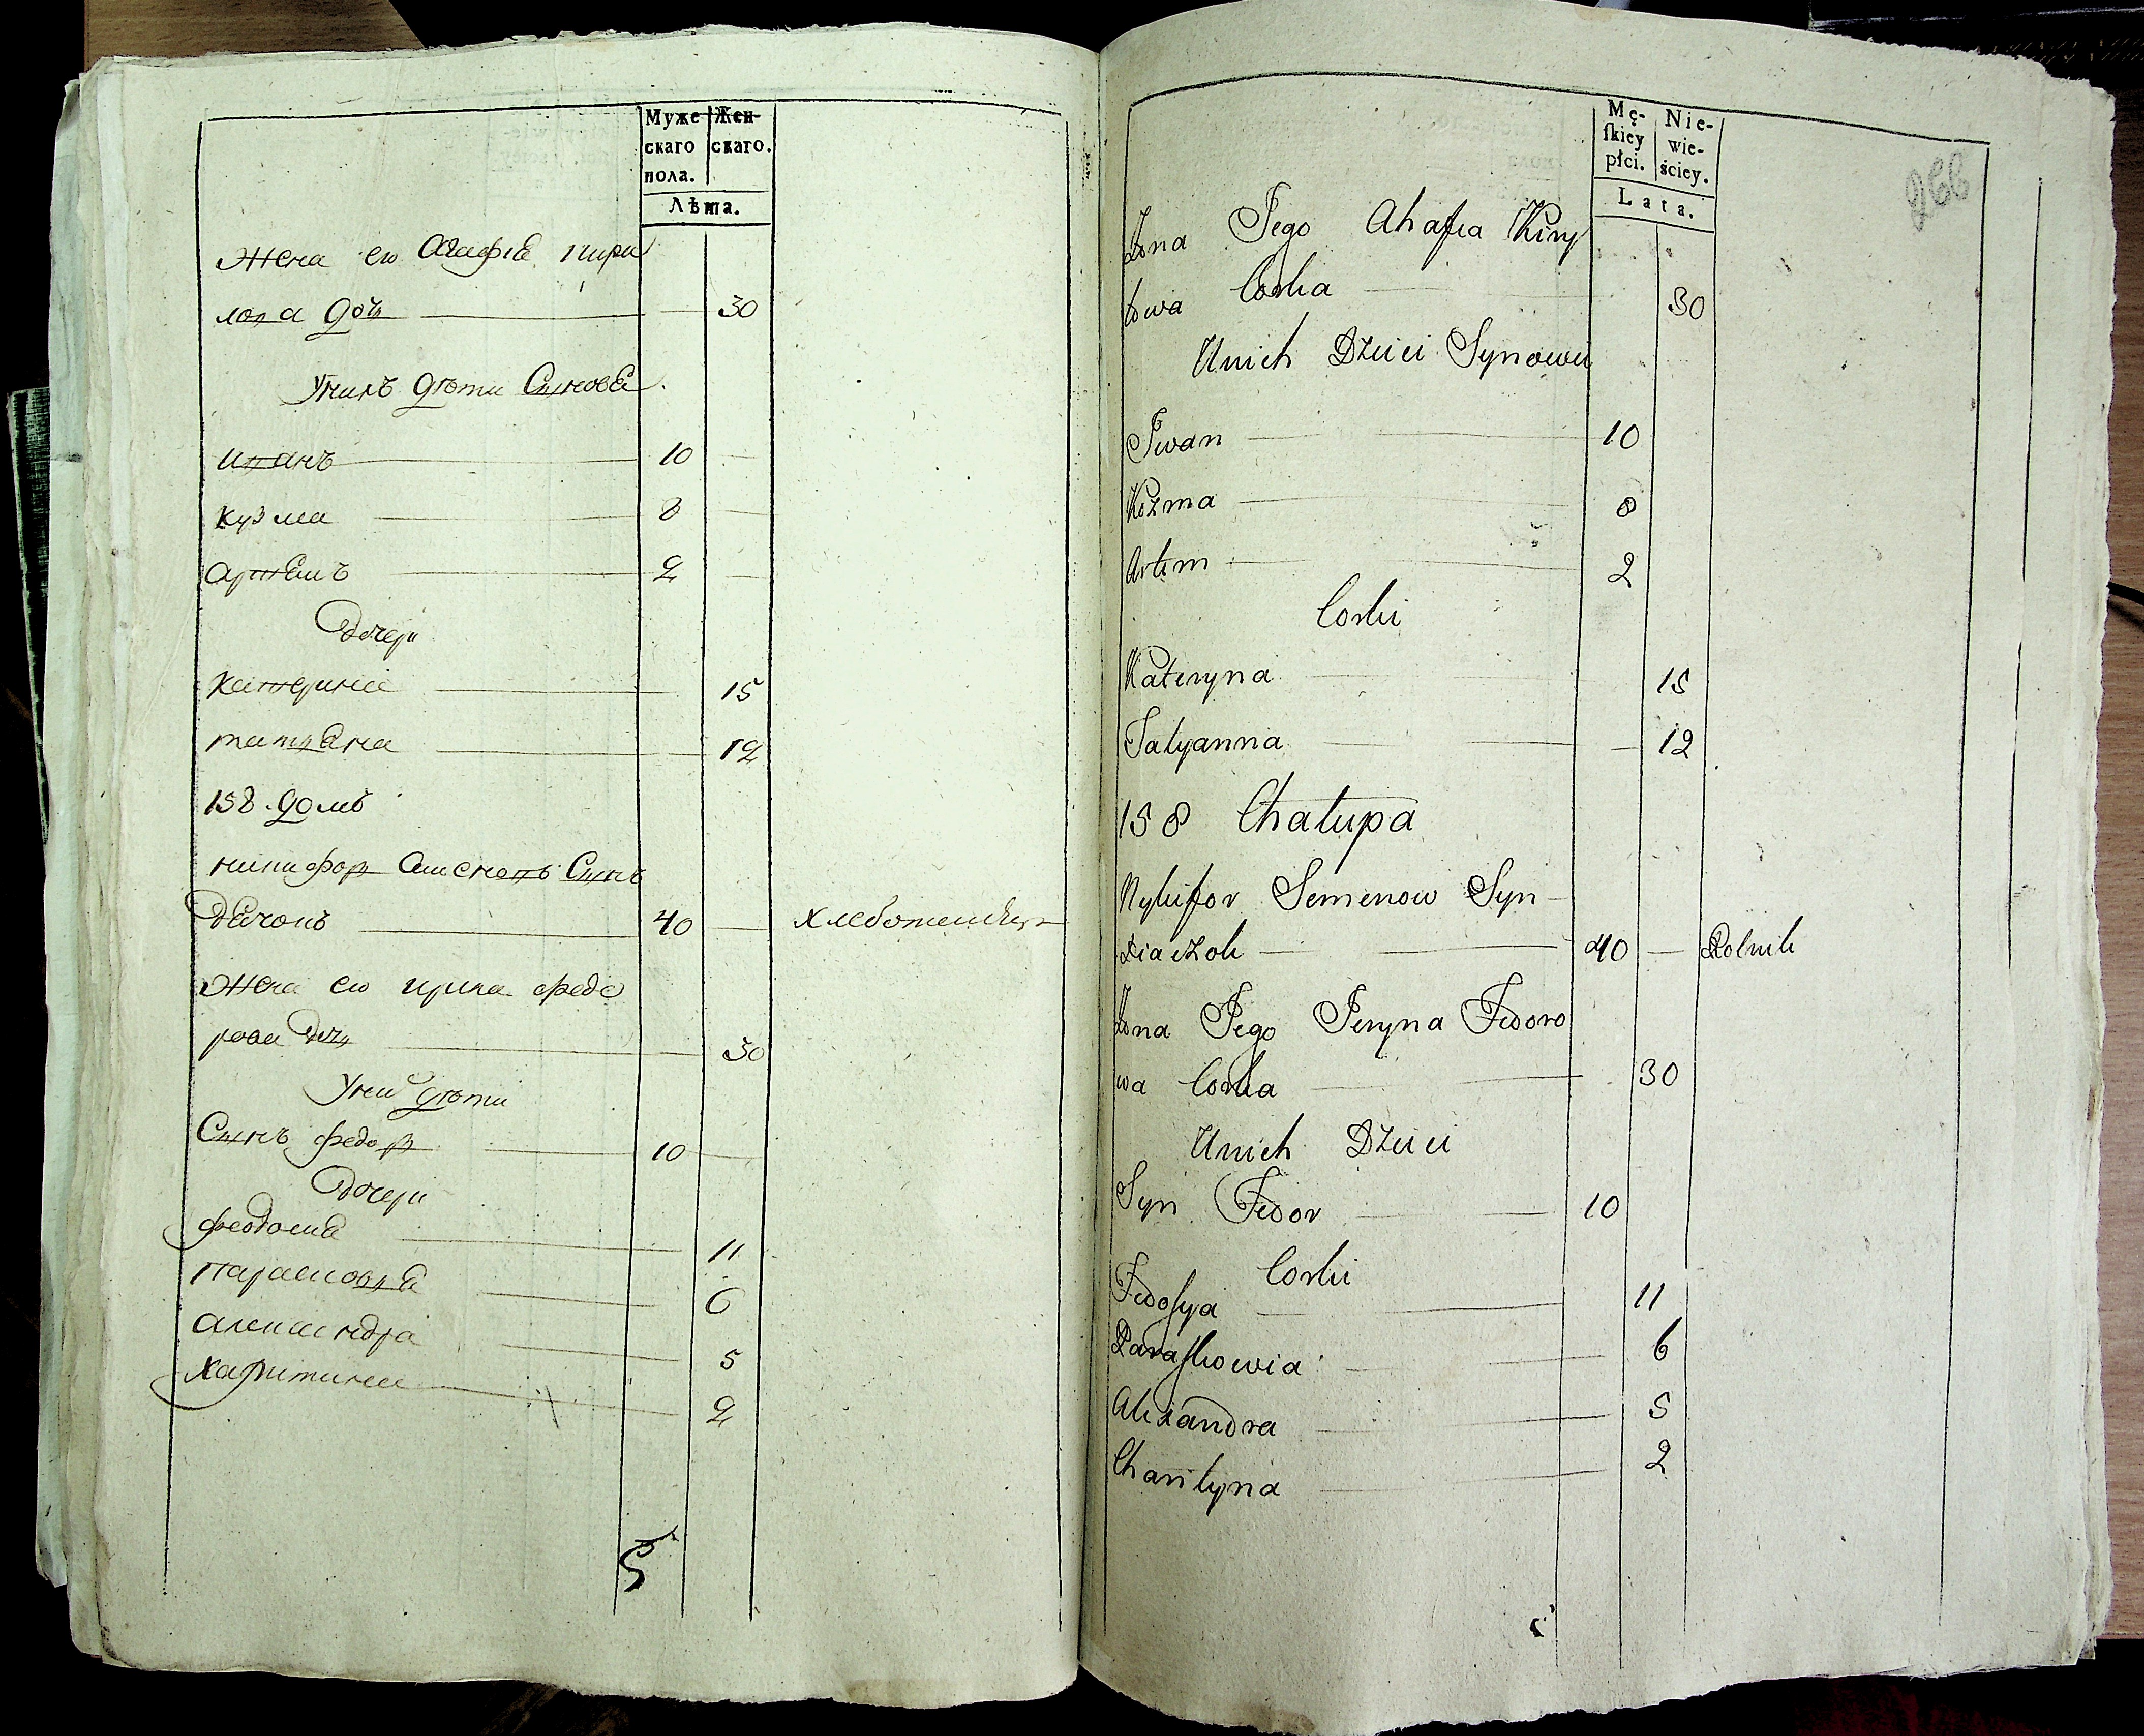 Муже
скаго
пола.
Жен-
скаго.
Лѣта.
Жена ево Агафиа кири
лова дочь 30
У нихъ дѣти Сыновья
иванъ 10
кузма 8
артемъ 2
Дочери
катерина 15
татьяна 12
158 домъ
никифор Семеновъ Сынъ
Дьячокъ 40
Жена ево ирина федо
рова Дочь 30
У них дѣти
Сынъ федор 10
Дочери
феодосиа 11
парасковья 6
александра 5
харитина 2
Mę-
ſkiey
płci.
Nie-
wie-
ściey.
Lata.
266
Żona Jego Ahafia Kiry
łowa Corka 30
U nich Dzieci Synowie
Iwan 10
Kozma 8
Artem 2
Corki
Kateryna 15
Tatyanna 12
158 Chałupa
Nykifor Semenow Syn
Diaczok 40 Rolnik
Żona Jego Jeryna Fedoro
wa Corka 30
U nich Dzieci
Syn Fedor 10
Corki
Fedoſya 11
Paraſkowia 6
Alexandra 5
Charytyna 2